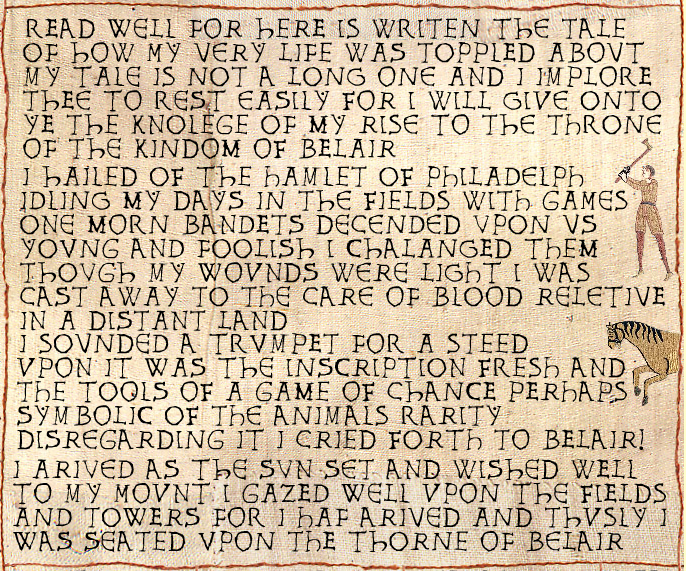 READ WELL FOR hERE IS WRITEN ThE TALE
OF hOW MY VERY LIFE WAS TOPPLED ABOVT
MY TALE IS NOT A LONG ONE AND I IMPLORE
ThEE TO REST EASILY FOR I WILL GIVE ONTO
YE ThE KNOLEGE OF MY RISE TO ThE ThRONE
OF ThE KINDOM OF BELAIR
I hAILED OF ThE hAMLET OF PhILADELPh
IDLING MY DAYS IN ThE FIELDS WITh GAMES
ONE MORN BANDETS DECENDED VPON VS
YOVNG AND FOOLISh I ChALANGED ThEM
ThOVGh MY WOVNDS WERE LIGhT I WAS
CAST AWAY TO ThE CARE OF BLOOD RELETIVE
IN A DISTANT LAND
I SOVNDED A TRVMPET FOR A STEED
VPON IT WAS ThE INSCRIPTION FRESh AND
ThE TOOLS OF A GAME OF ChANCE PERhAPS
SYMBOLIC OF ThE ANIMALS RARITY
DISREGARDING IT I CRIED FORTh TO BELAIR!
I ARIVED AS ThE SVN SET AND WIShED WELL
TO MY MOVNT I GAZED WELL VPON ThE FIELDS
AND TOWERS FOR I hAF ARIVED AND ThVSLY I
WAS SEATED VPON ThE ThORNE OF BELAIR